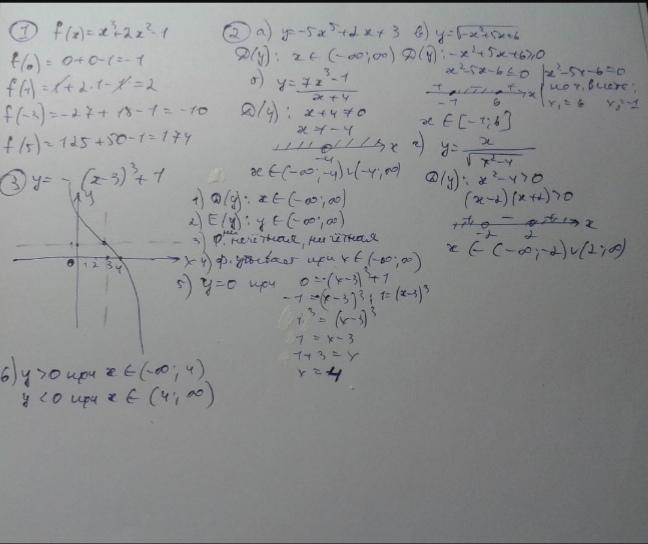 1 f(x)=x³+2x²-1
f(0)=0+0-1=-1
f(1)=1+2·1-1=2
f(-3)=-27+18-1=-10
f(5)=125+50-1=174
2 а) y=-5x⁵+2x+3
D(y): x∈(-∞;∞)
б) y=(7x³-1)/(x+4)
D(y): x+4≠0
x≠-4
-4 x
x∈(-∞;-4)∪(-4;∞)
в) y=√(-x²+5x+6)
D(y): -x²+5x+6≥0
x²-5x-6≤0
x²-5x-6=0
x₁=6 x₂=-1
+ - + x
-1 6
x∈[-1;6]
г) y=x/√(x²-4)
D(y): x²-4>0
(x-2)(x+2)>0
+ - + x
-2 2
x∈(-∞;-2)∪(2;∞)
3 y=-(x-3)³+1
y
1
0 1 2 3 4 x
1) D(y): x∈(-∞;∞)
2) E(y): y∈(-∞;∞)
3) Ф. ни чётная, ни чётная
4) ф. убывает при x∈(-∞;∞)
5) y=0 при 0=-(x-3)³+1
-1=-(x-3)³; 1=(x-3)³
1³=(x-3)³
1=x-3
1+3=x
x=4
6) y>0 при x∈(-∞;4)
y<0 при x∈(4;∞)